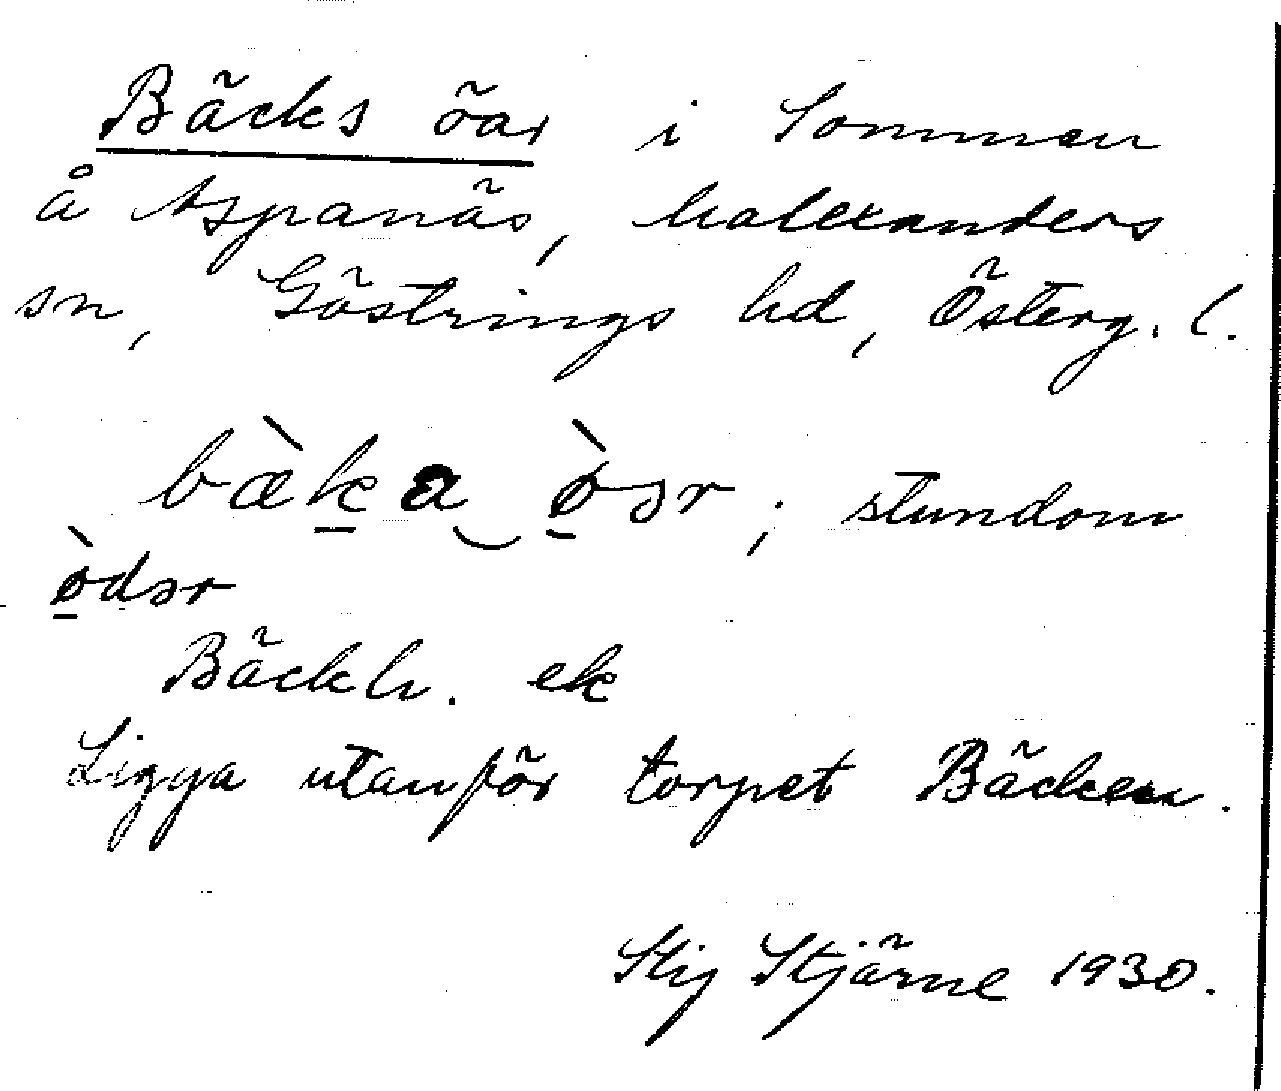 Bäcks öar i Sommen
å Aspanäs, Malexanders
sn, Göstrings hd, Österg. l.
bæ̀ka‿ø̀ər ; stundom
ø̀dər
Bäckh. ek
Ligga utanför torpet Bäcken.
Stig Stjärne 1930.